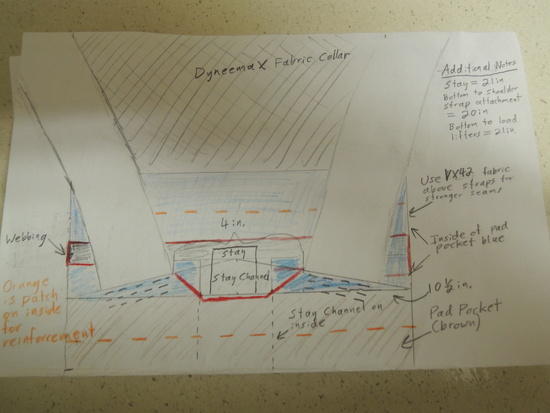 DyneemaX Fabric Collar
Additional Notes
Stay = 21in
Bottom to shoulder
strap attachment
= 20in
Bottom to load
lifters = 21in
Use VX42 fabric
above straps for
stronger seams
4 in.
Webbing
Stay
Stay Channel
Inside of pad
pocket blue
Orange
is patch
on inside
for
reinforcement
10 ½ in
Stay Channel on
inside
Pad Pocket
(brown)